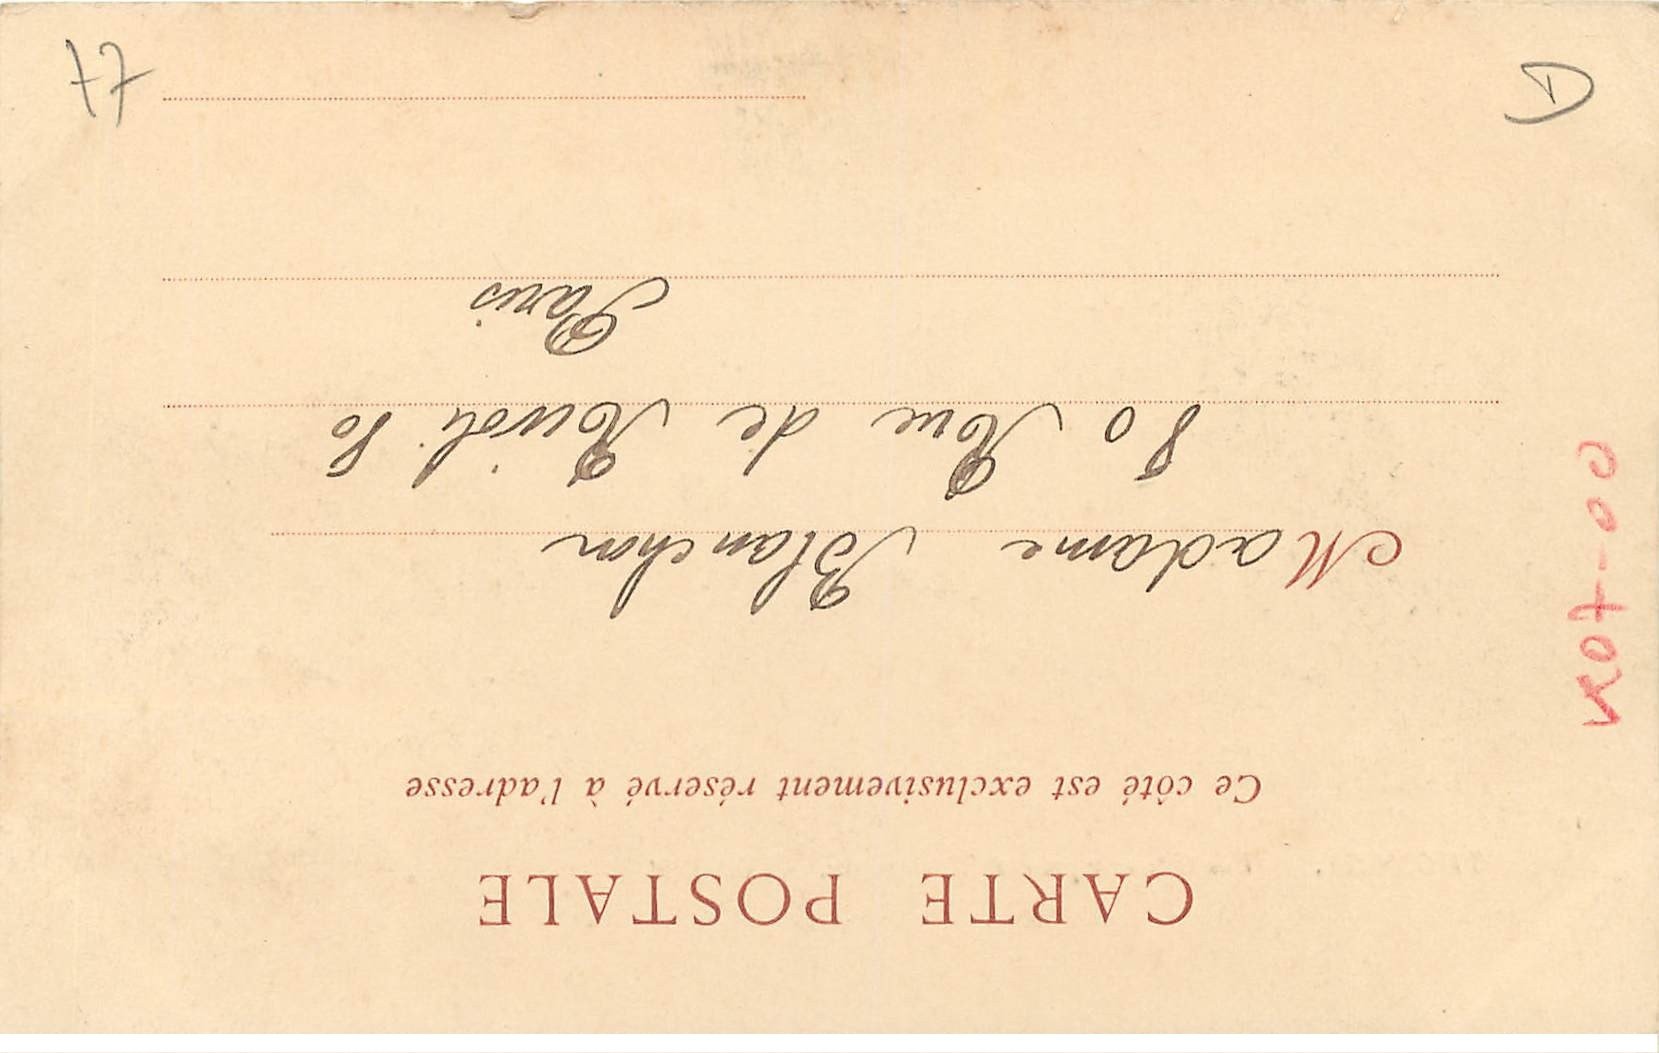 CARTE POSTALE
Ce côté est exclusivement réservé à l'adresse
Madame Blanchon
80 Rue de Rivoli 80
Paris
77
D